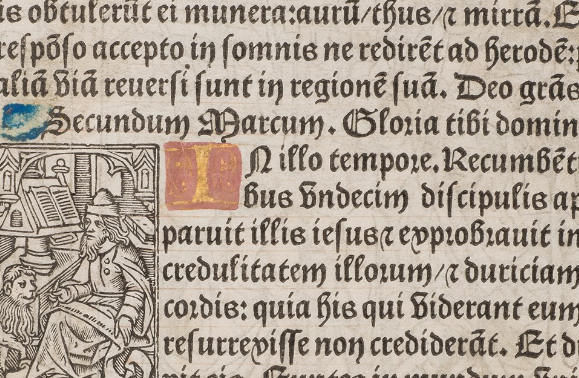 is obtulerūt ei munera:aurū/thus/⁊ mirrā.E
respōso accepto in somnis ne redirēt ad herodē:p
aliā viā reuersi sunt in regionē suā. Deo grās
Secundum Marcum. Gloria tibi domin
IN illo tempore. Recumbēt
bus vndecim discipulis ap
paruit illis iesus⁊ exprobrauit in
credulitatem illorum/⁊ duriciam
cordis: quia his qui viderant eum
resurrexisse non crediderāt. Et di